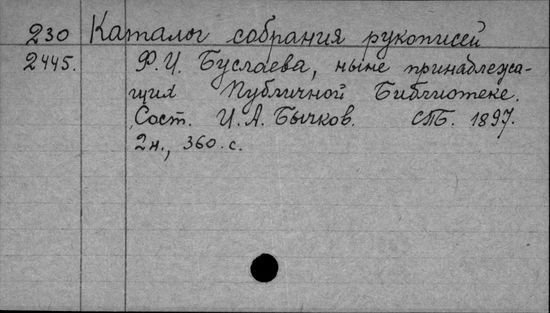 230 Каталог собрания рукописей
2445. Ф. И. Буслаева, ныне принадлежа-
щих Публичной Библиотеке.
Сост. И. А. Бычков. СПБ. 1897.
2н., 360 с.